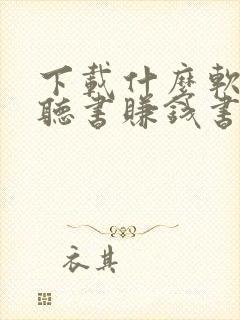 下載什麼軟
聽書賺錢書
衣其